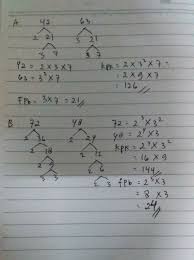 A
42 63
2 21 3 21
3 7 3 7
42 = 2 x 3 x 7
63 = 3² x 7
KPK = 2 x 3² x 7 =
= 2 x 9 x 7
= 126
FPb = 3 x 7 = 21
B
72 48
2 36 2 24
2 18 2 12
2 2
3 3
72 = 2³ x 3²
48 = 2⁴ x 3
KPK = 2⁴ x 3²
= 16 x 9
= 144
fpb = 2³ x 3
= 8 x 3
= 24